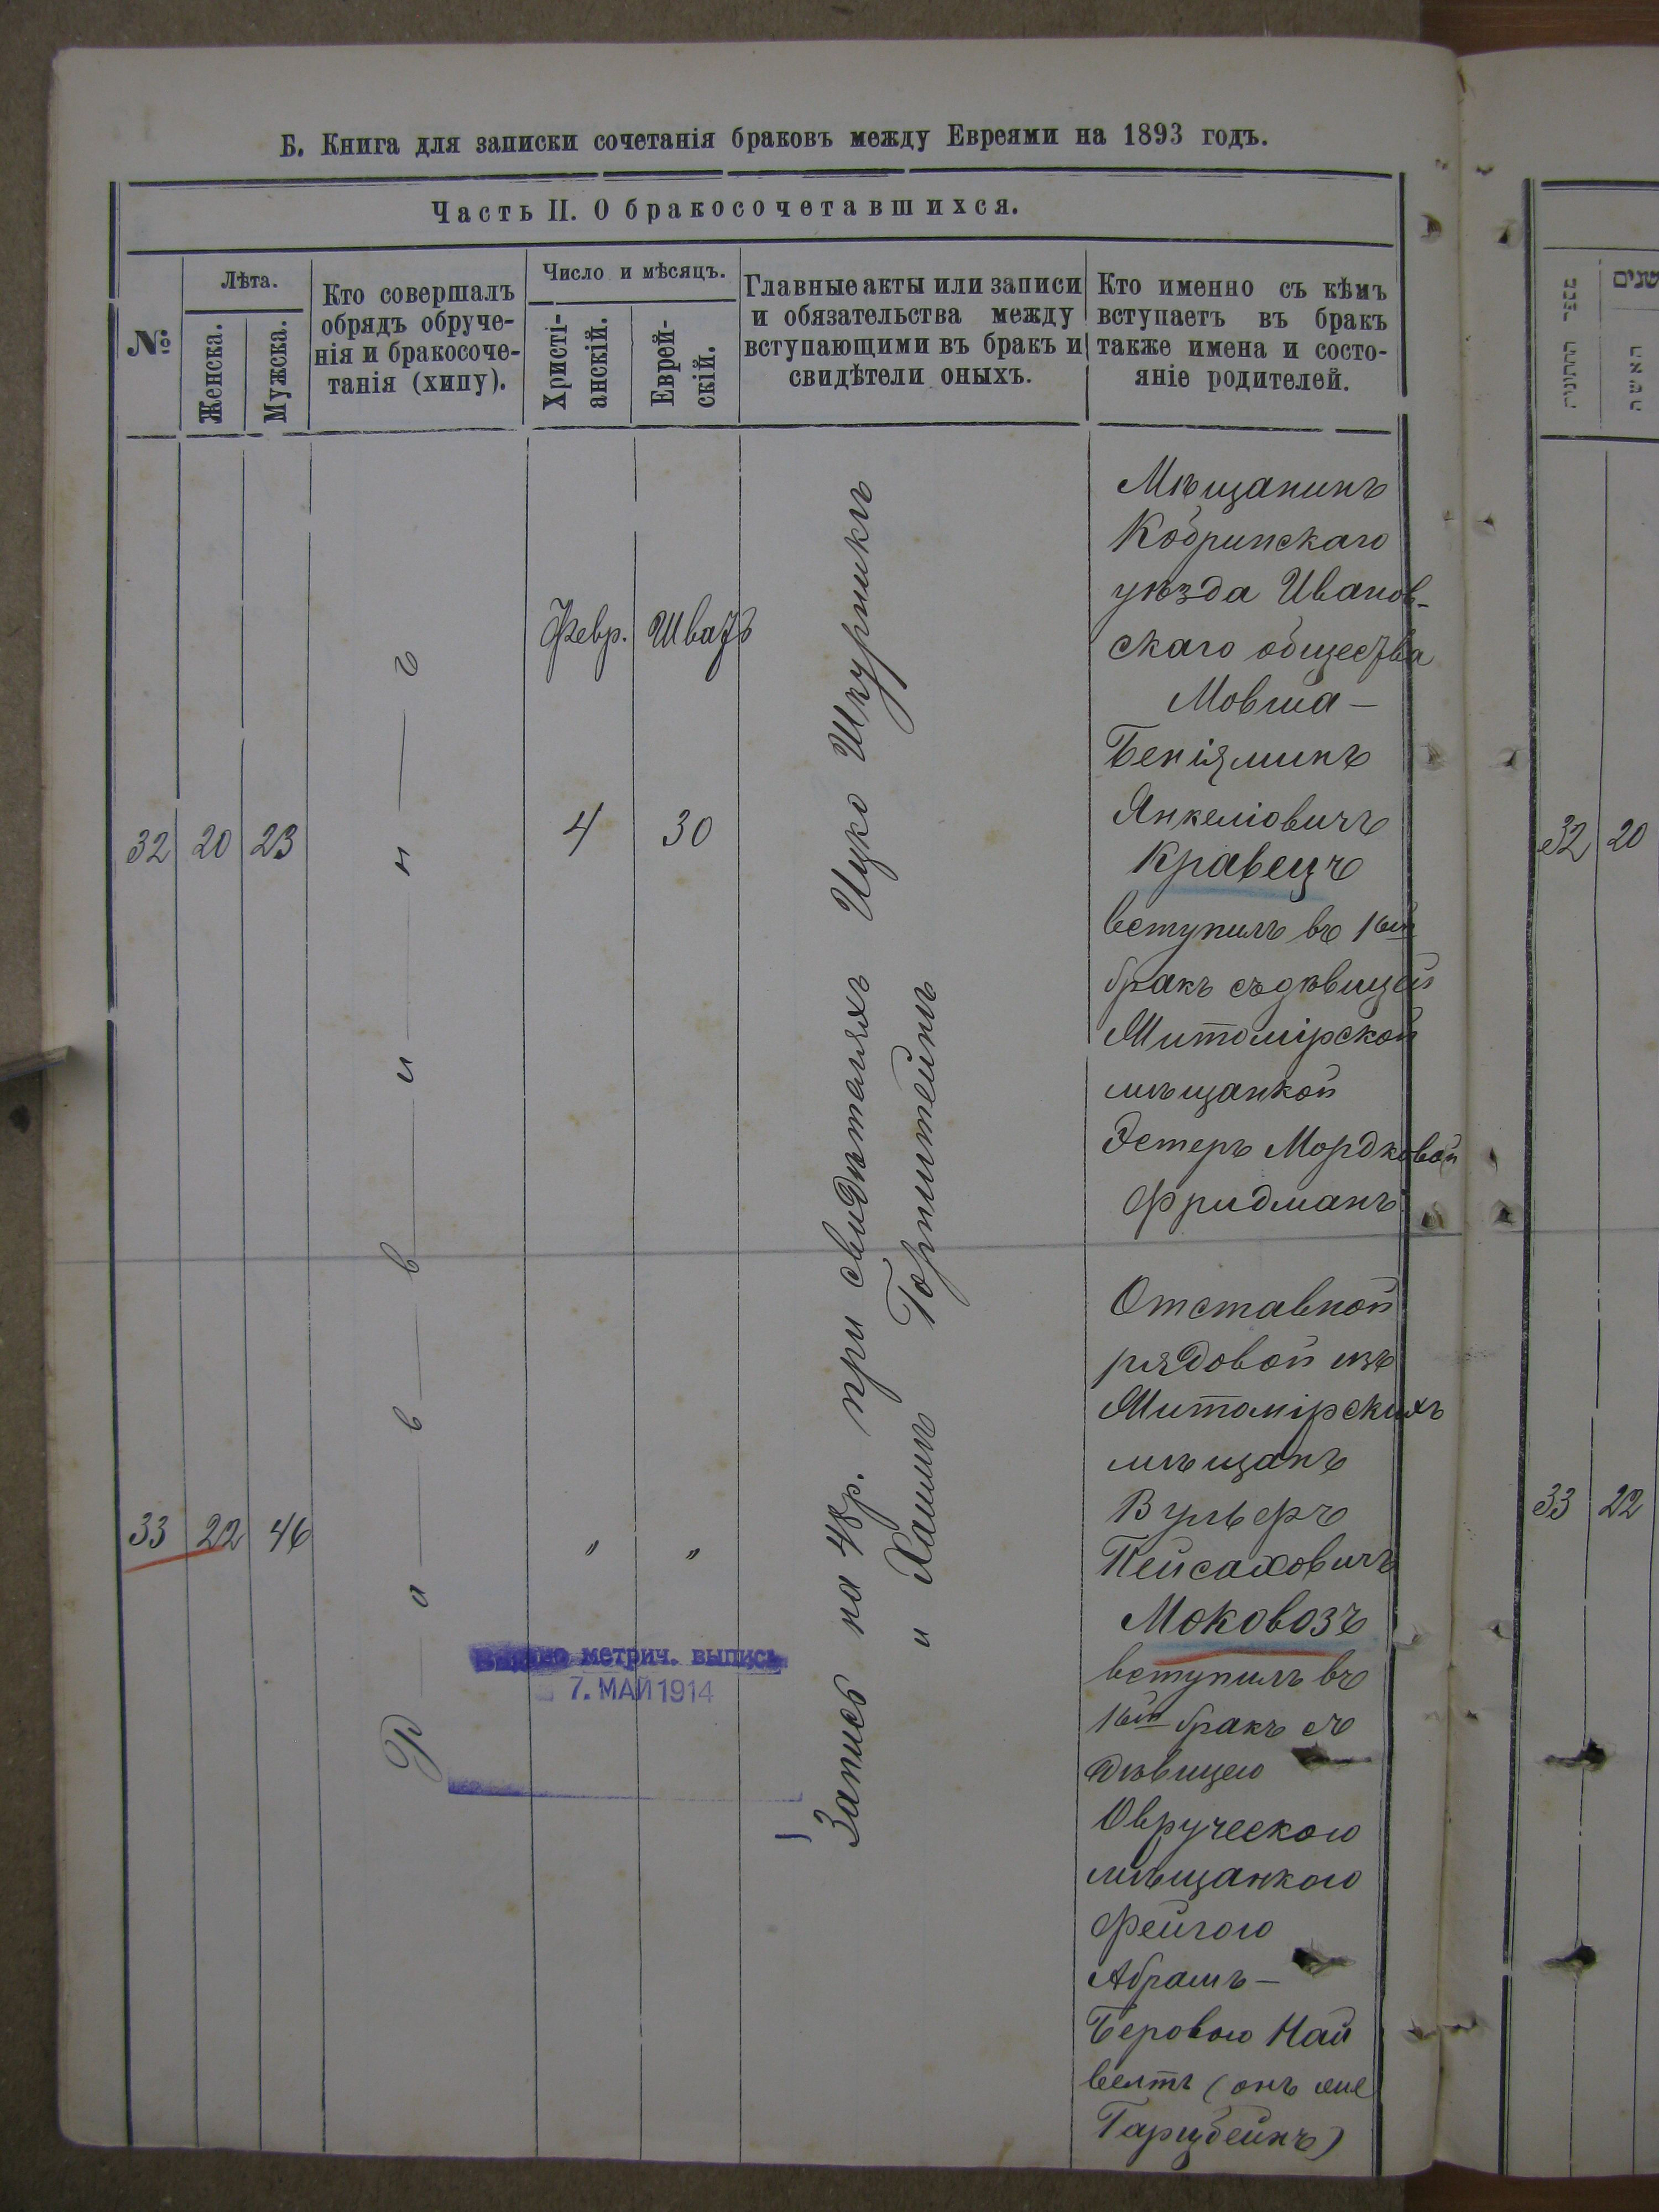 Б. Книга для записки сочетанія браковъ между Евреями на 1893 годъ.
Часть II. О бракосочетавшихся.
№
Лѣта.
Женска.
Мужска.
Кто совершалъ
обрядъ обруче-
нія и бракосоче-
танія (хипу).
Число и мѣсяцъ.
Христі-
анскій.
Еврей-
скій.
Главные акты или записи
и обязательства между
вступающими въ бракъ и
свидѣтели оныхъ.
Кто именно съ кѣмъ
вступаетъ въ бракъ
также имена и состо-
яніе родителей.
Февр. Шватъ
32 20 23
4 30
Р а в в и н ъ
Запись на 48р. при свидѣтеляхъ Ицко Шкурникъ
и Хаимъ Горнштейнъ
Мѣщанинъ
Кобринскаго
уѣзда Иванов-
скаго общества
Мовша-
Беніяминъ
Янкеліовичъ
Кравецъ
вступилъ въ 1ый
бракъ съ дѣвицей
Житомірской
мѣщанкой
Эстеръ Мордковой
Фридманъ
33 22 46
" "
Отставной
рядовой изъ
Житомірскихъ
мѣщанъ
Вульфъ
Пейсаховичъ
Моковозъ
вступилъ въ
1ый бракъ съ
дѣвицею
Овручскою
мѣщанкою
Фейгою
Абрамъ-
Беровою Най
велтъ (онъ же
Гарцбейнъ)
метрич. выпись
7. МАЙ 1914
מספר החתונות
שנים
האשה
32 20
33 22